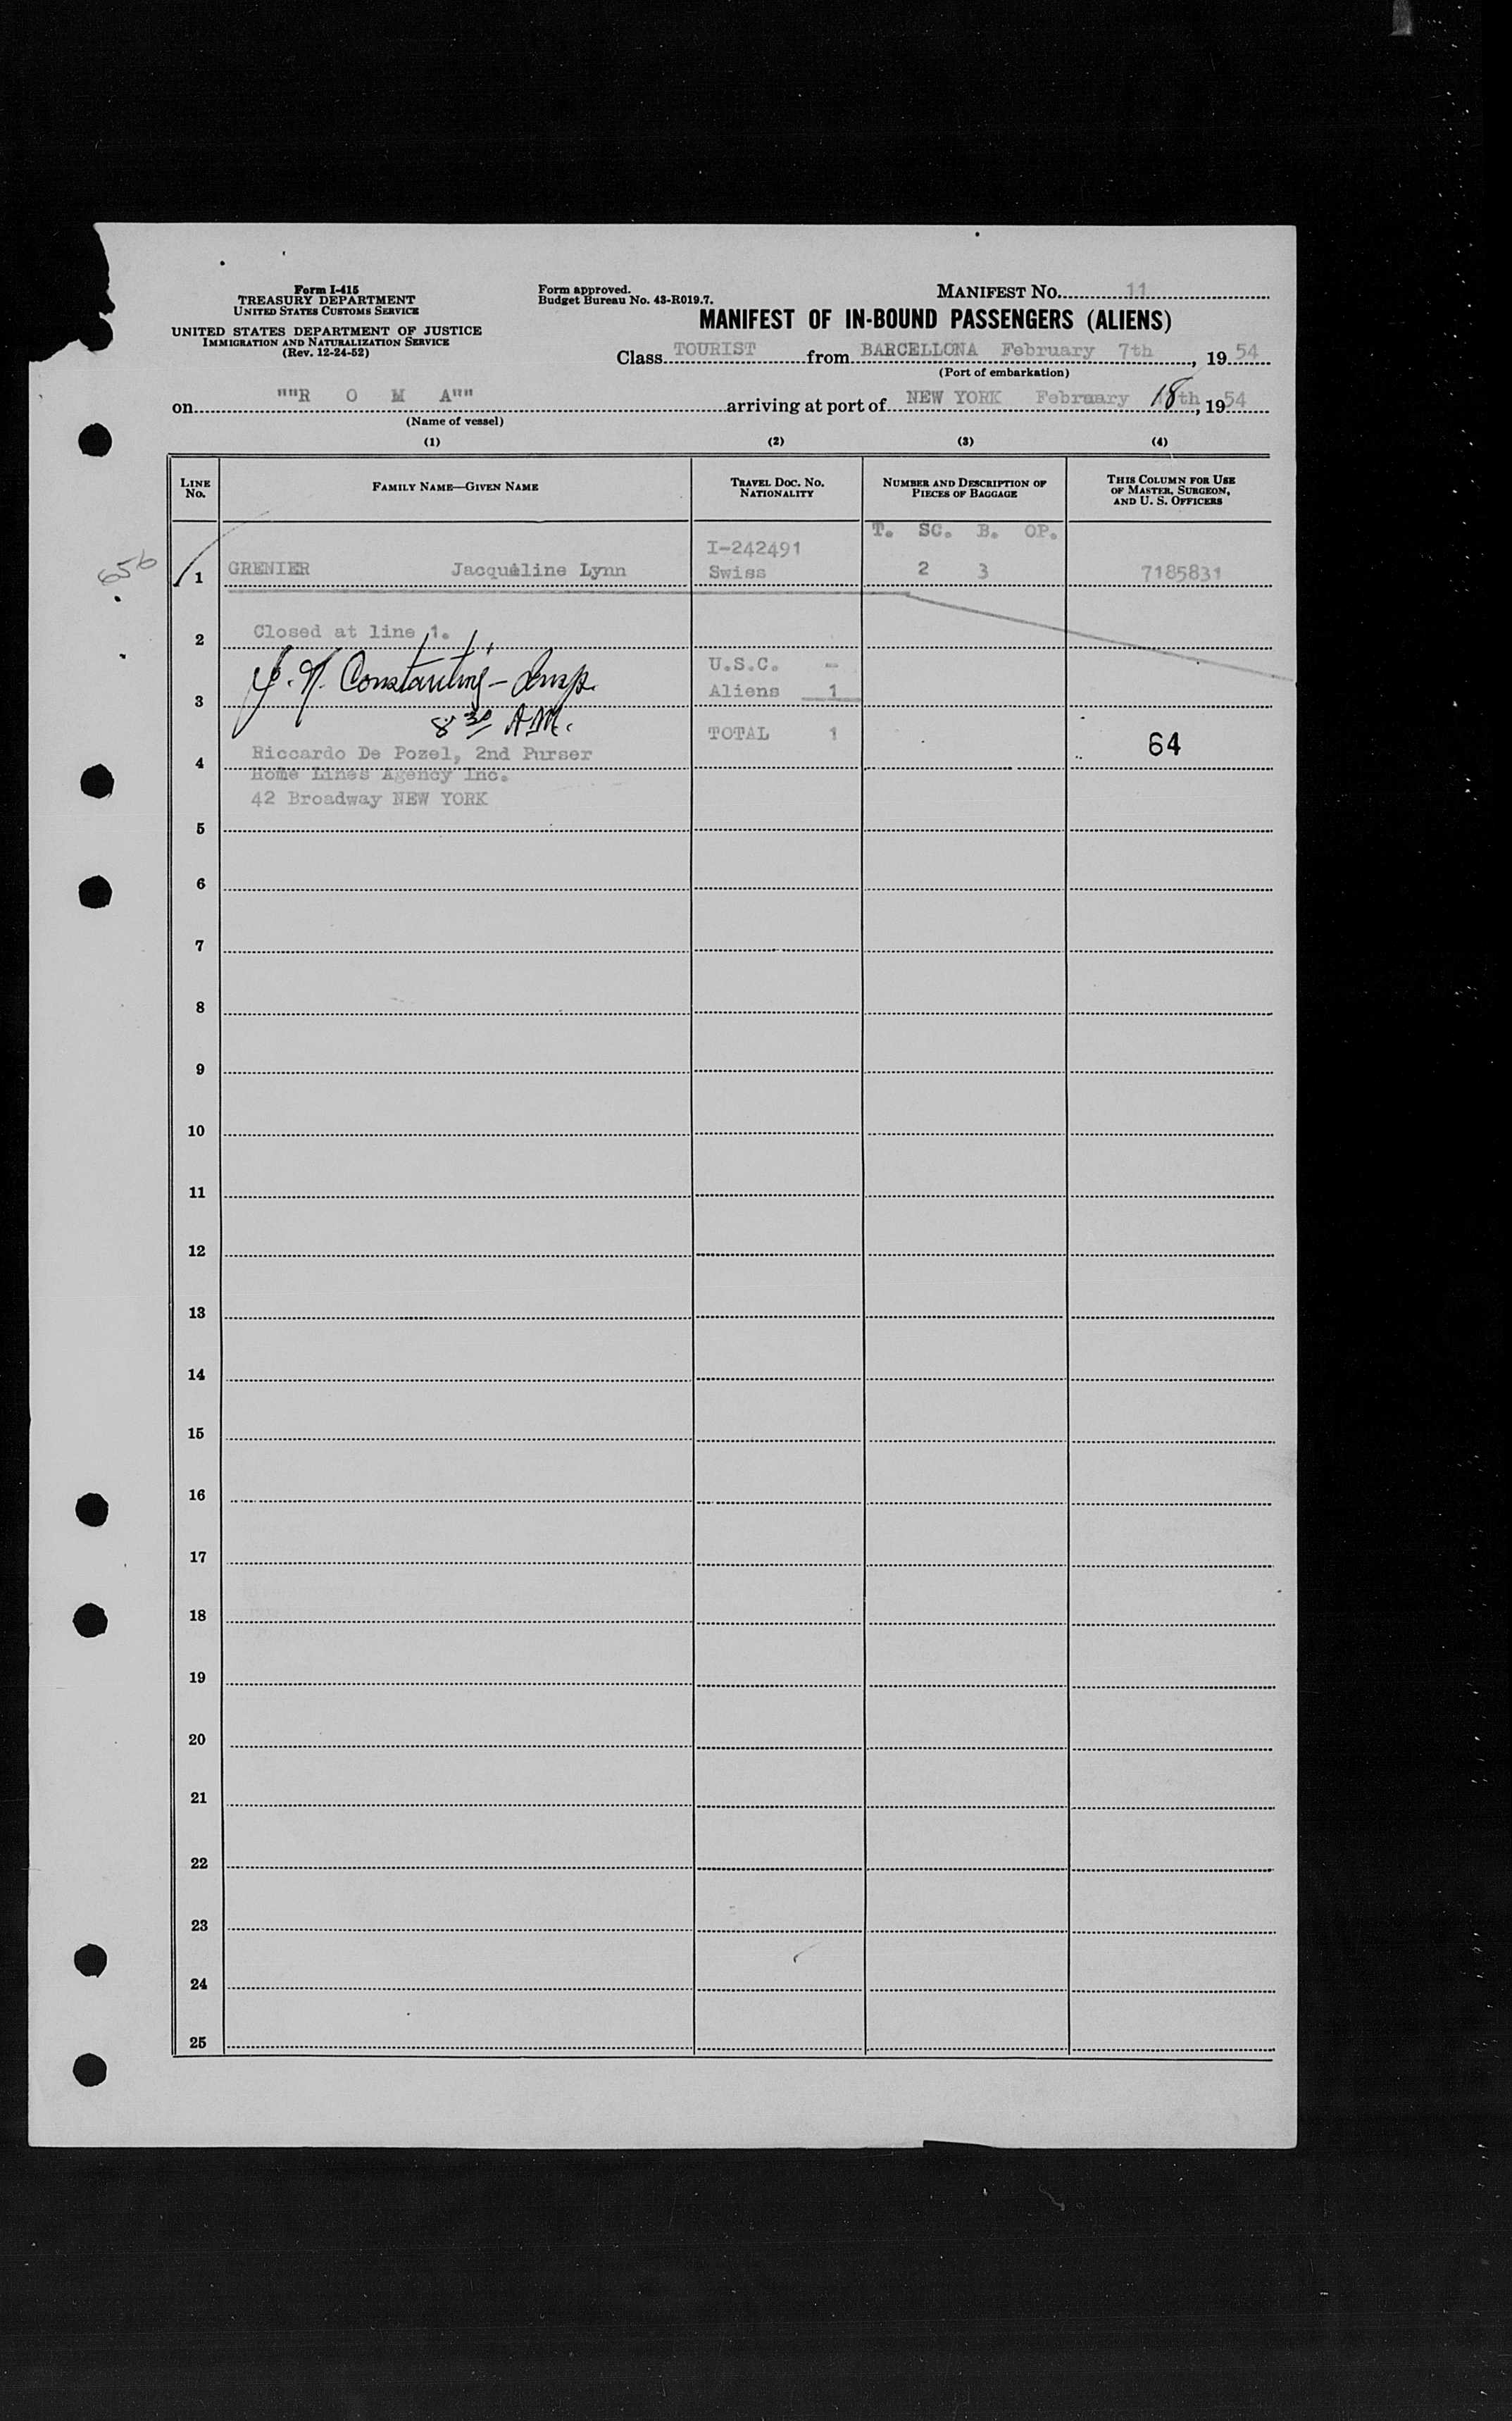 Form I-415
TREASURY DEPARTMENT
UNITED STATES CUSTOMS SERVICE
UNITED STATES DEPARTMENT OF JUSTICE
IMMIGRATION AND NATURALIZATION SERVICE
(Rev. 12-24-52)
Form approved.
Budget Bureau No. 43-R019.7.
MANIFEST NO. 11
MANIFEST OF IN-BOUND PASSENGERS (ALIENS)
Class TOURIST from BARCELLONA February 7th, 1954
(Port of embarkation)
on ""R O M A"" arriving at port of NEW YORK February 18th, 1954
(Name of vessel)
(1) (2) (3) (4)
LINE NO. FAMILY NAME—GIVEN NAME TRAVEL DOC. NO. NATIONALITY NUMBER AND DESCRIPTION OF PIECES OF BAGGAGE THIS COLUMN FOR USE OF MASTER, SURGEON, AND U. S. OFFICERS
T. SC. B. OP.
I-242491
656 1 GRENIER Jacquéline Lynn Swiss 2 3 7185831
2 Closed at line 1.
U.S.C. -
3 Constantine - Insp. Aliens 1
8 30 A.M.
TOTAL 1
64
4 Riccardo De Pozel, 2nd Purser
Home Lines Agency Inc.
42 Broadway NEW YORK
5
6
7
8
9
10
11
12
13
14
15
16
17
18
19
20
21
22
23
24
25